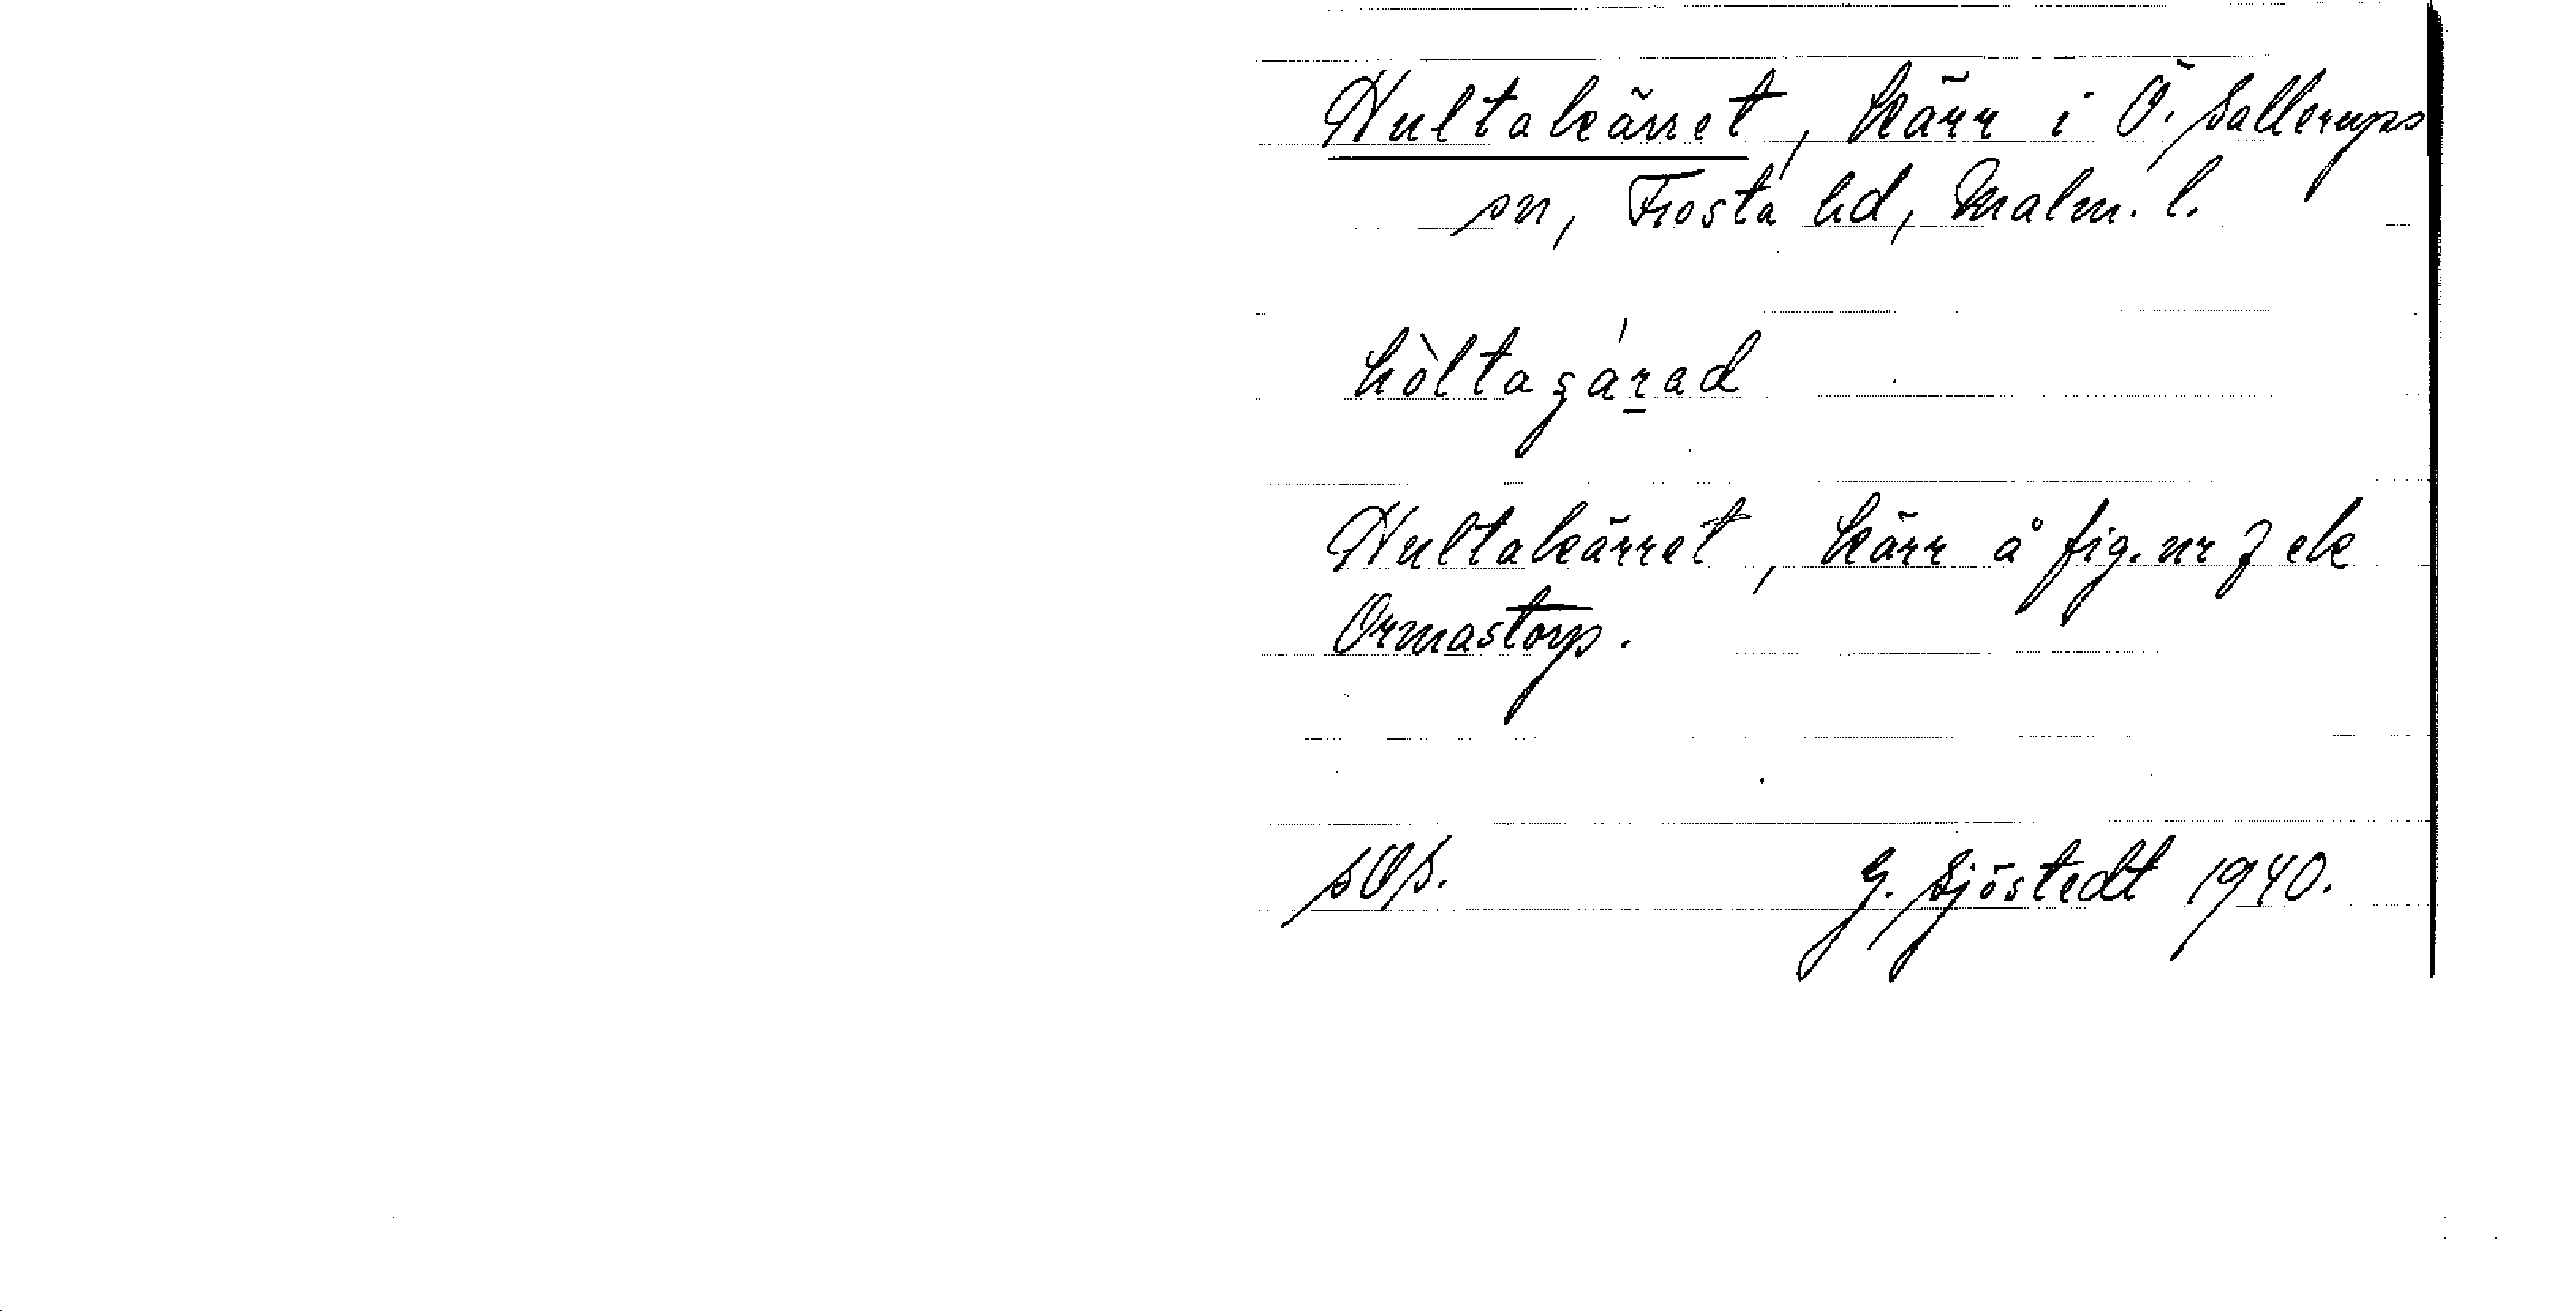 Hultakärret, kärr i Ö. Sallerups
sn, Frosta hd, Malm. l.
hòltaʂárad
Hultakärret, kärr å fig. nr 7 ek
Ormastorp.
G. Sjöstedt 1940.